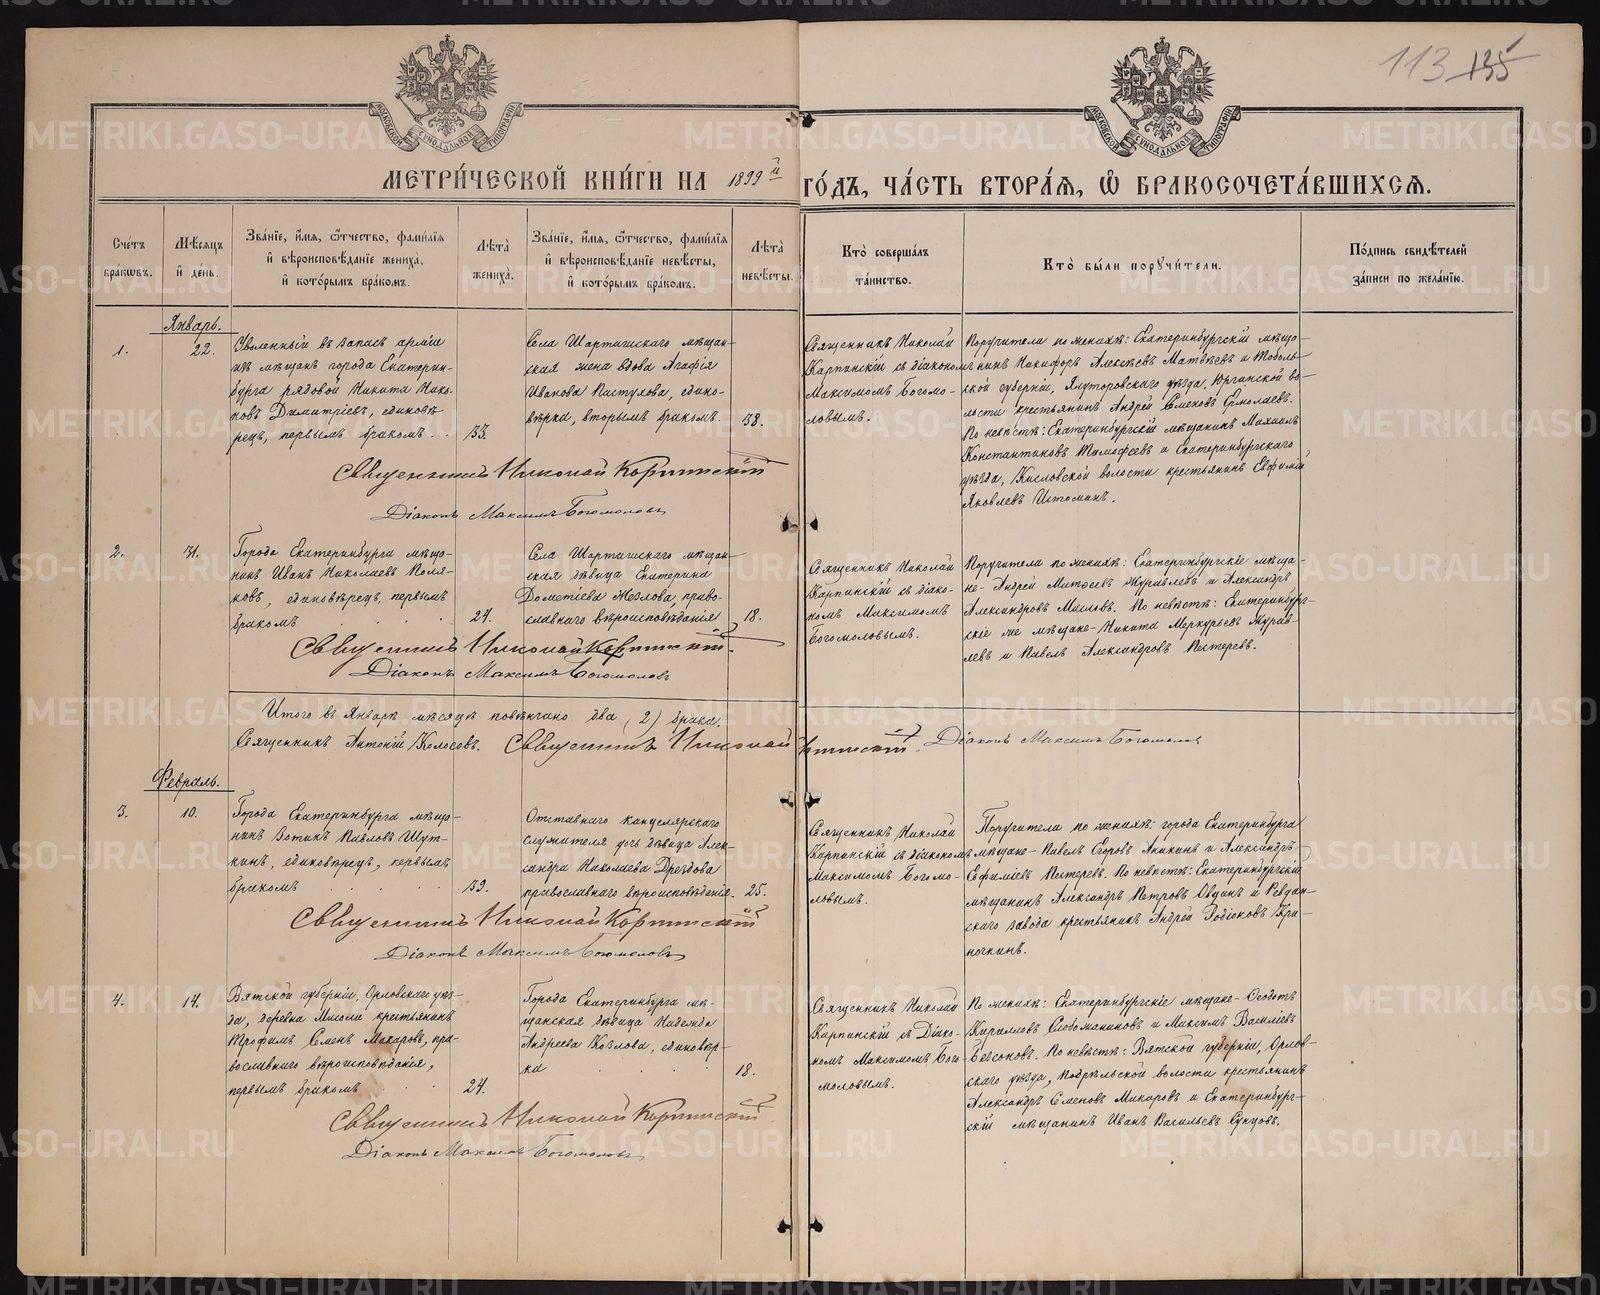 113 135
МОСКОВСКОЙ СѴНОДАЛЬНОЙ ТИПОГРАФІИ
МОСКОВСКОЙ СѴНОДАЛЬНОЙ ТИПОГРАФІИ
МЕТРИ́ЧЕСКОЙ КНИ́ГИ НА 1899й ГО́ДЪ, ЧА́СТЬ ВТОРА́Я, Ѡ БРАКОСОЧЕТА́ВШИХСЯ.
Сче́тъ бра́кωвъ.
Мѣ́сяцъ и́ де́нь.
Зва́нїе, и́мя, ѻ́тчество, фами́лїя и́ вѣроисповѣ́данїе жениха̀, и́ кото́рымъ бра́комъ.
Лѣта̀ жениха̀.
Зва́нїе, и́мя, ѻ́тчество, фами́лїя и́ вѣроисповѣ́данїе невѣ́сты, и́ кото́рымъ бра́комъ.
Лѣта̀ невѣ́сты.
Кто̀ соверша́лъ та́инство.
Кто̀ бы́ли порꙋчи́тели.
По́дпись свидѣ́телей за́писи по жела́нїю.
Январь.
1.
22.
Уволенный въ запасъ арміи
изъ мѣщанъ города Екатерин-
бурга рядовой Никита Нико-
новъ Димитріевъ, единовѣ-
рецъ, первымъ бракомъ.
33.
Села Шарташскаго мѣщан-
ская жена вдова Агафія
Иванова Пастухова, едино-
вѣрка, вторымъ бракомъ.
38.
Священникъ Николай
Карпинскій съ діакономъ
Максимомъ Богомо-
ловымъ.
Поручители по женихѣ: Екатеринбургскій мѣща-
нинъ Никифоръ Алексѣевъ Матвѣевъ и Тоболь-
ской губерніи, Ялуторовскаго уѣзда, Юргинской во-
лости крестьянинъ Андрей Семеновъ Ермолаевъ.
По невѣстѣ: Екатеринбургскій мѣщанинъ Михаилъ
Константиновъ Тимофеевъ и Екатеринбургскаго
уѣзда, Кисловской волости крестьянинъ Евфимій
Яковлевъ Истоминъ.
Священникъ Николай Карпинскій
Діаконъ Максимъ Богомоловъ
2.
31.
Города Екатеринбурга мѣща-
нинъ Иванъ Николаевъ Поля-
ковъ, единовѣрецъ, первымъ
бракомъ
24.
Села Шарташскаго мѣщан-
ская дѣвица Екатерина
Дометіева Жезлова, право-
славнаго вѣроисповѣданія
18.
Священникъ Николай
Карпинскій съ діако-
номъ Максимомъ
Богомоловымъ.
Поручители по женихѣ: Екатеринбургскіе мѣща-
не- Андрей Матѳеевъ Журавлевъ и Александръ
Александровъ Масловъ. По невѣстѣ: Екатеринбург-
скіе же мѣщане- Никита Меркурьевъ Журав-
левъ и Павелъ Александровъ Пестеревъ.
Священникъ Николай Карпинскій.
Діаконъ Максимъ Богомоловъ
Итого въ Январѣ мѣсяцѣ повѣнчано два (2) брака.
Священникъ Антоній Колосовъ. Священникъ Николай Карпинскій. Діаконъ Максимъ Богомоловъ
Февраль.
3.
10.
Города Екатеринбурга мѣща-
нинъ Зотикъ Павловъ Шут-
кинъ, единовѣрецъ, первымъ
бракомъ
39.
Отставнаго канцелярскаго
служителя дочь дѣвица Алек-
сандра Николаева Дрездова
православнаго вѣроисповѣданія.
25.
Священникъ Николай
Карпинскій съ діакономъ
Максимомъ Богомо-
ловымъ.
Поручители по женихѣ: города Екатеринбурга
мѣщане- Павелъ Егоровъ Аникинъ и Александръ
Евфиміевъ Пестеревъ. По невѣстѣ: Екатеринбургскій
мѣщанинъ Александръ Петровъ Овдинъ и Ревдин-
скаго завода крестьянинъ Андрей Родіоновъ Кра-
ночкинъ.
Священникъ Николай Карпинскій
Діаконъ Максимъ Богомоловъ
4.
14.
Вятской губерніи, Орловскаго уѣз-
да, деревни Мысли крестьянинъ
Трофимъ Семеновъ Макаровъ, пра-
вославнаго вѣроисповѣданія,
первымъ бракомъ
24.
Города Екатеринбурга мѣ-
щанская дѣвица Надежда
Андреева Козлова, единовѣр-
ка
18.
Священникъ Николай
Карпинскій съ Діако-
номъ Максимомъ Бого-
моловымъ.
По женихѣ: Екатеринбургскіе мѣщане- Ѳеодотъ
Кирилловъ Слободчиковъ и Максимъ Василіевъ
Безсоновъ. По невѣстѣ: Вятской губерніи, Орлов-
скаго уѣзда, Подрѣльской волости крестьянинъ
Александръ Семеновъ Макаровъ и Екатеринбург-
скій мѣщанинъ Иванъ Васильевъ Сунцовъ.
Священникъ Николай Карпинскій
Діаконъ Максимъ Богомоловъ
METRIKI.GASO-URAL.RU